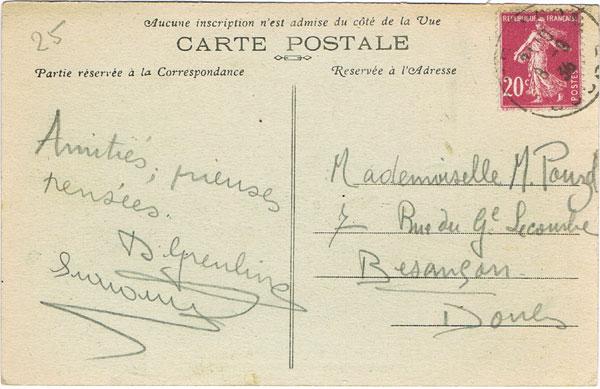 25
Aucune inscription n'est admise du côté de la Vue
CARTE POSTALE
Partie réservée à la Correspondance
Réservée à l'Adresse
RÉPUBLIQUE FRANÇAISE
20c
POSTES
Amitiés, pieuses
pensées.
Mademoiselle M.
7 Rue du Gl Lecombe
Besançon
Doubs